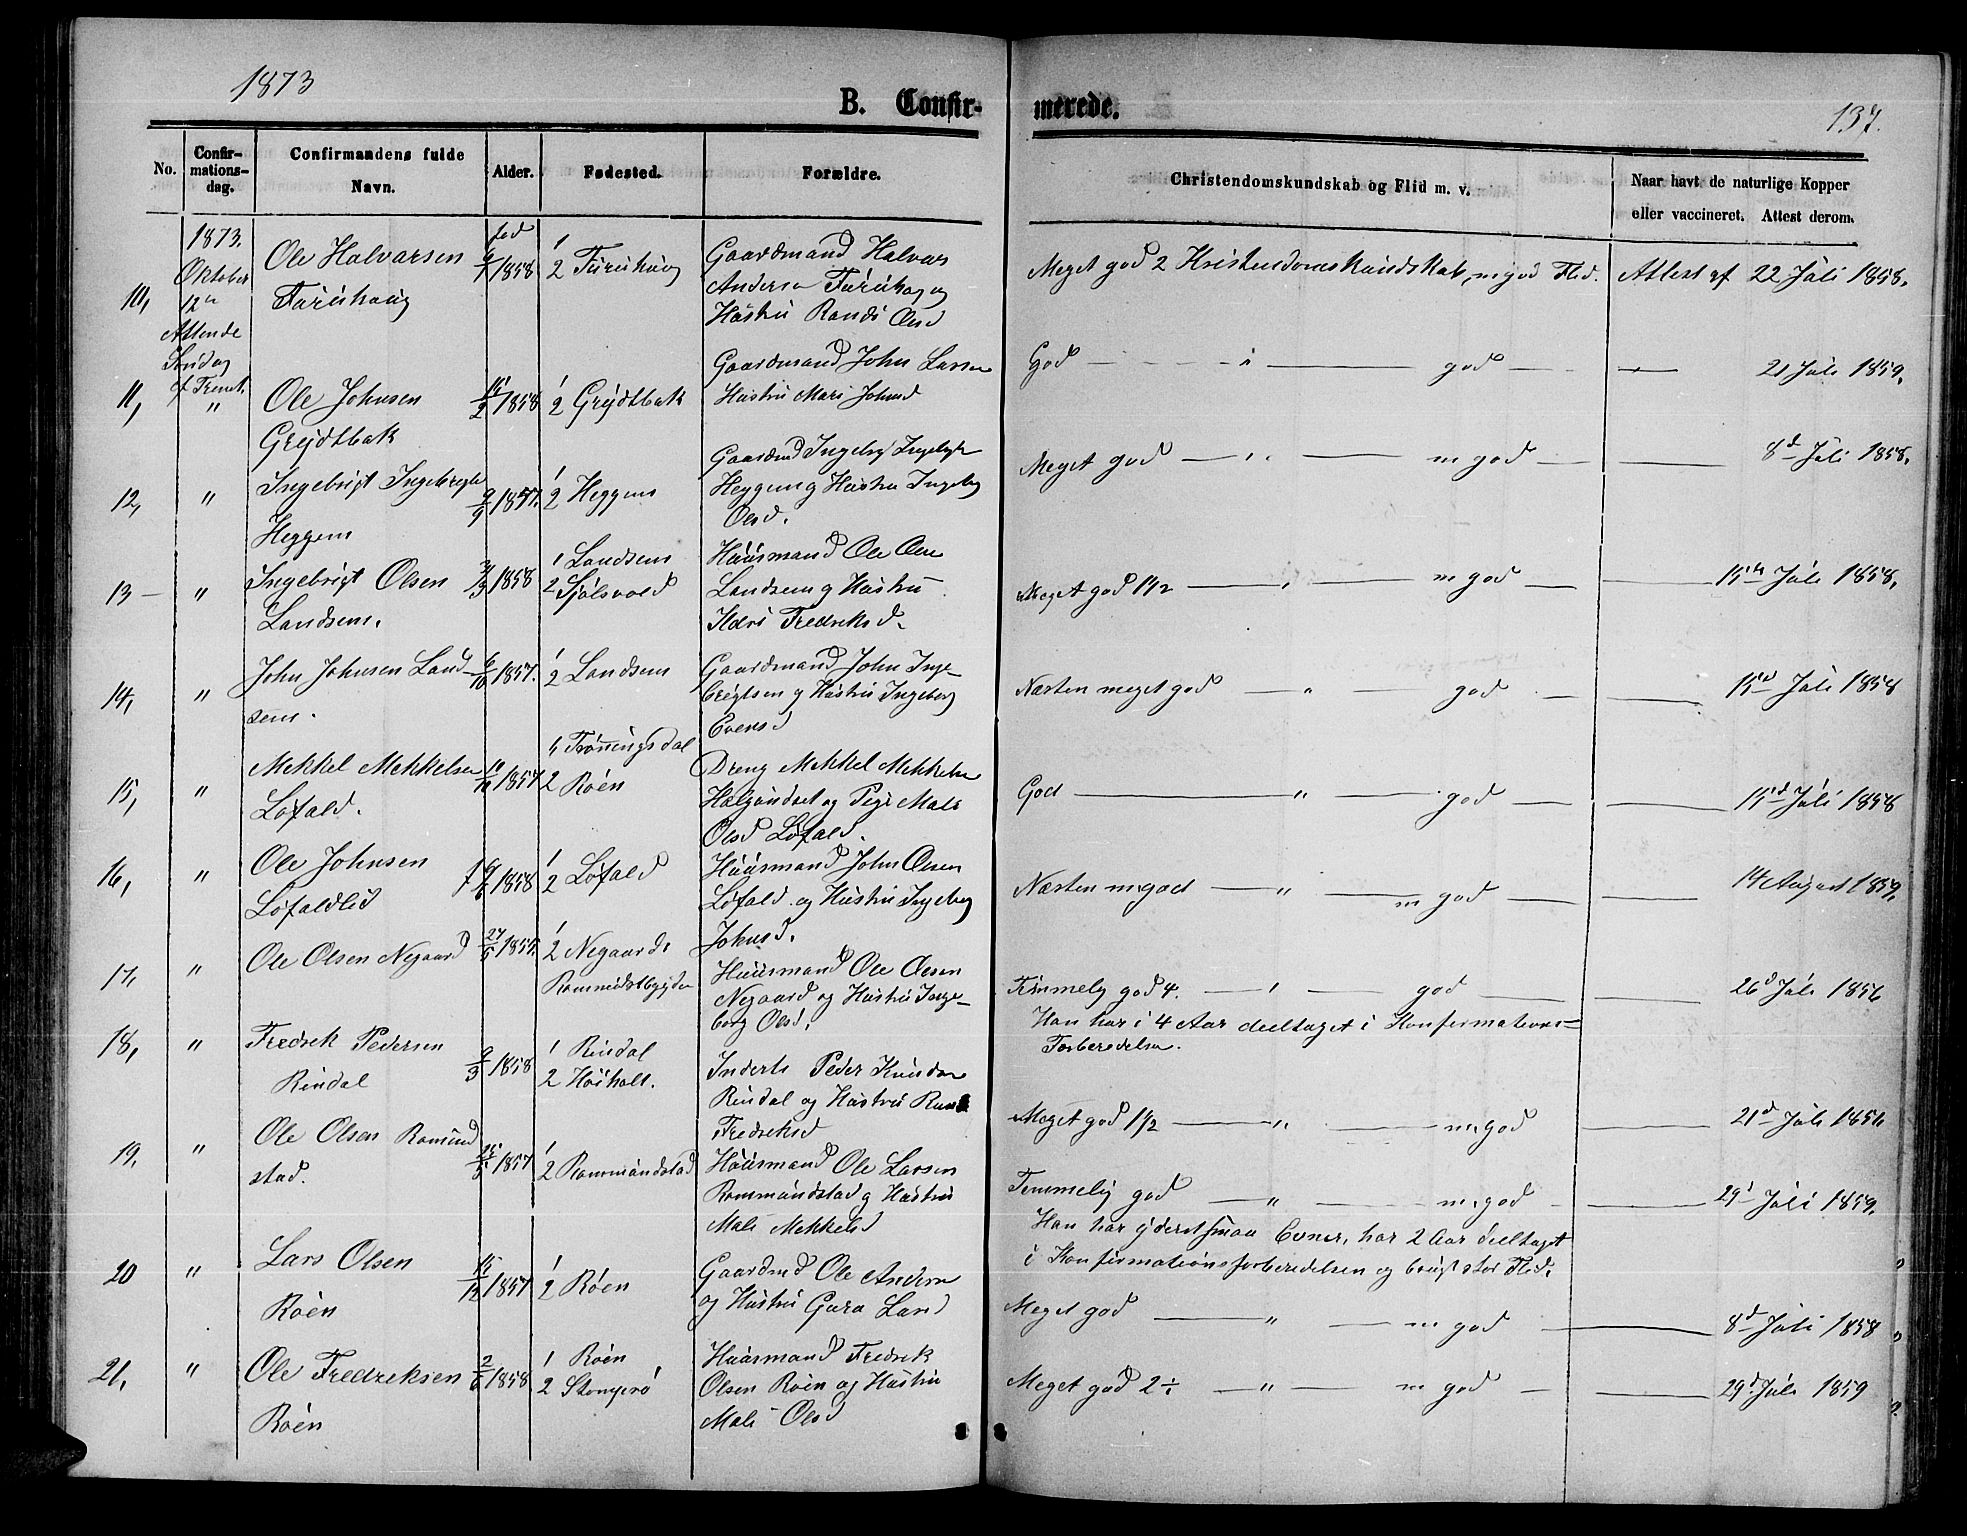 1873
B. Confir-
merede.
137.
No.
Confir-
mations-
dag.
Confirmandens fulde
Navn.
Alder.
Fødested.
Forældre.
Christendomskundskab og Flid m. v.
Naar havt de naturlige Kopper
eller vaccineret. Attest derom.
10,
1873.
Oktober
12te
Attende
Søndag
Ole Halvarsen
Furuhaug
1858
1
2 Furuhaug
Gaardmand Halvar
Hustru Randi Olsd
Meget god 2 Kristendomskundskab, m god Flid.
Attest af 22 Juli 1858.
11,
"
Ole Johnsen
Grejdtbak
15/2 1858
1
2 Grejdtbak
Gaardmand John Larsen
Hustru Mari Johnsd
God — " — god —
21 Juli 1859.
12,
"
Ingebrigt
Heggem
2/9 1857.
1
2 Heggem
Olsd.
Meget god — " — m god —
8d Juli 1858.
13 —
"
Ingebrigt Olsen
Landsem.
1858
1 Landsem
2 Sjølsvold
Huusmand Ole Olsen
Landsem og Hustru
Ildri Fredriksd.
Meget god 1½ — " — m god —
15de Juli 1858.
14,
"
John Johnsen Land-
sem.
6/10 1857.
1
2 Landsem
Gaardmand John Inge-
brigtsen og Hustru Ingeborg
Evensd
Næsten meget god — " — god —
15d Juli 1858
15,
"
Mekkel Mekkelsen
Løfald.
1857
1 Trønningsdal
2 Røen
Dreng Mekkel Mekkelsen
og Pige Mali
Olsd Løfald.
God — " — god —
15d Juli 1858
16,
"
Ole Johnsen
Løfaldlid
1858
1
2 Løfald
Huusmand John Olsen
Løfald og Hustru Ingeborg
Johnsd.
Næsten m god — " — m god —
14 August 1859.
17,
"
Ole Olsen Negaard
1855.
1
2 Negaard
Huusmand Ole Olsen
Negaard og Hustru Inge-
borg Olsd.
Temmelig god 4. — " — god —
26d Juli 1856
Han har i 4 Aar deeltaget i Konfirmations-
Forberedelse.
18,
"
Fredrik Pedersen
Rindal
9/3 1858
1 Rindal
2 Høiholt.
Inderst Peder Knudsen
Rindal og Hustru
Fredriksd
Meget god 1½ — " — m. god —
21d Juli
19.
"
Ole Olsen Romund
stad.
1857
1
2 Rommundstad
Huusmand Ole Larsen
Rommundstad og Hustru
Mali Mekkelsd
Temmelig god — " — m. god —
29d Juli 1859.
Han har yderst smaa Evner, har 2 Aar deeltaget
i Konfirmationsforberedelsen og brugt stor Flid.
20
"
Lars Olsen
Røen
15/12 1857
1
2 Røen
Gaardmd Ole Andersen
og Hustru Guro
Meget god — " — m god —
8d Juli 1858
21,
"
Ole Fredriksen
Røen
1858
1 Røen
2
Huusmand Fredrik
Olsen Røen og Hustru
Mali Olsd
Meget god 2 ÷ — " — m god —
29d Juli 1859